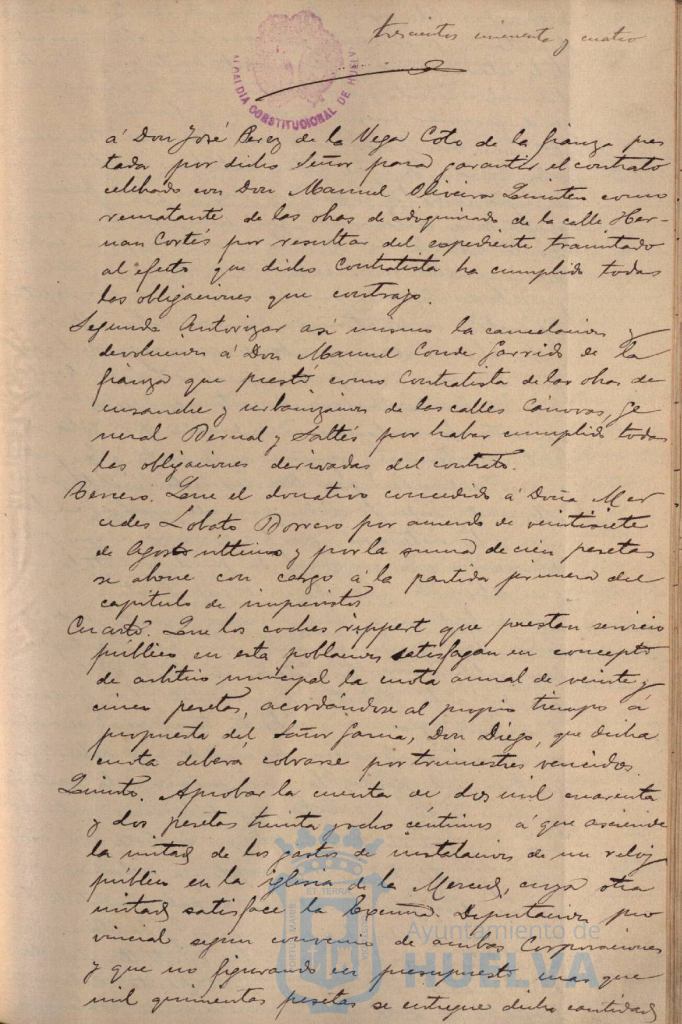 trescientos cincuenta y cuatro
ALCALDIA CONSTITUCIONAL DE HUELVA
á Don José Perez de la Vega Coto de la fianza pres
tada por dicho Señor para garantir el contrato
celebrado con Don Manuel Oliveira Quintero como
rematante de las obras de adoquinado de la calle Her-
nan Cortés por resultar del expediente tramitado
al efecto que dicho Contratista ha cumplido todas
las obligaciones que contrajo.
Segundo Autorizar asi mismo la cancelacion y
devolucion á Don Manuel Conde Garrido de la
fianza que prestó como Contratista de las obras de
ensanche y urbanizacion de las calles Cánovas, Ge
neral Bernal y Saltés por haber cumplido todas
las obligaciones derivadas del contrato.
Tercero. Que el donativo concedido á Doña Mer
cedes Lobato Borrero por acuerdo de veintisiete
de Agosto último y por la suma de cien pesetas
se abone con cargo á la partida primera del
capitulo de imprevistos
Cuarto. Que los coches rippert que prestan servicio
público en esta poblacion satisfagan en concepto
de arbitrio municipal la cuota annal de veinte y
cinco pesetas, acordándose al propio tiempo á
propuesta del Señor Garcia, Don Diego, que dicha
cuota deberá cobrarse por trimestres vencidos.
Quinto. Aprobar la cuenta de dos mil cuarenta
y dos pesetas treinta y ocho céntimos á que asciende
la mitad de los gastos de instalacion de un reloj
público en la iglesia de la Merced, cuya otra
mitad satisface la Excma. Diputacion pro
vincial segun convenio de ambas Corporaciones
y que no figurando en presupuesto mas que
mil quinientas pesetas se entregue dicha cantidad
Ayuntamiento de
HUELVA